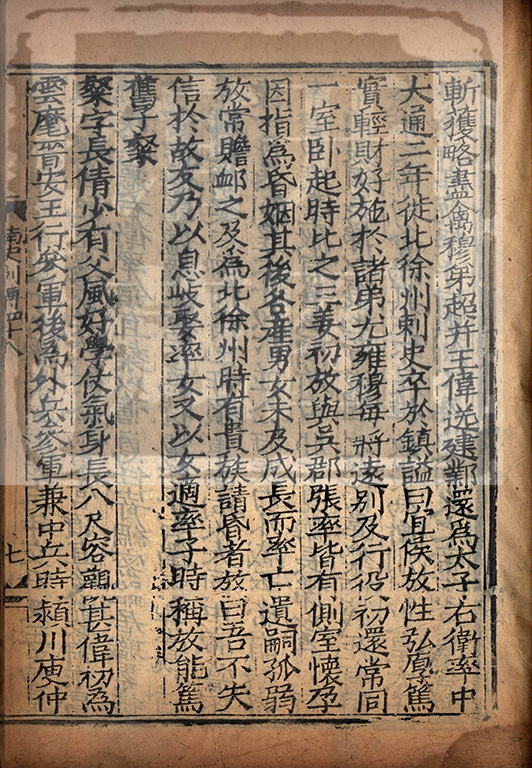 斬獲略盡禽穆弟超并王偉送建鄴還爲太子右衛率中
大通二年徙北徐州刺史卒於鎮謚曰宜侯放性弘厚篤
實輕財好施於諸弟尤雍穆每將遠別及行役初還常同
一室卧起時比之三姜初放與吳郡張率皆有側室懷孕
因指爲昏姻其後各産男女未及成長而率亡遺嗣孤弱
放常贍䘏之及爲北徐州時有貴族請昏者放曰吾不失
信於故友乃以息岐娶率女又以女適率子時稱放能篤
舊子粲
粲字長倩少有父風好學仗氣身長八尺容觀甚偉初爲
雲麾晉安王行參軍後爲外兵參軍兼中兵時潁川庾仲
南史列傳四十八
七